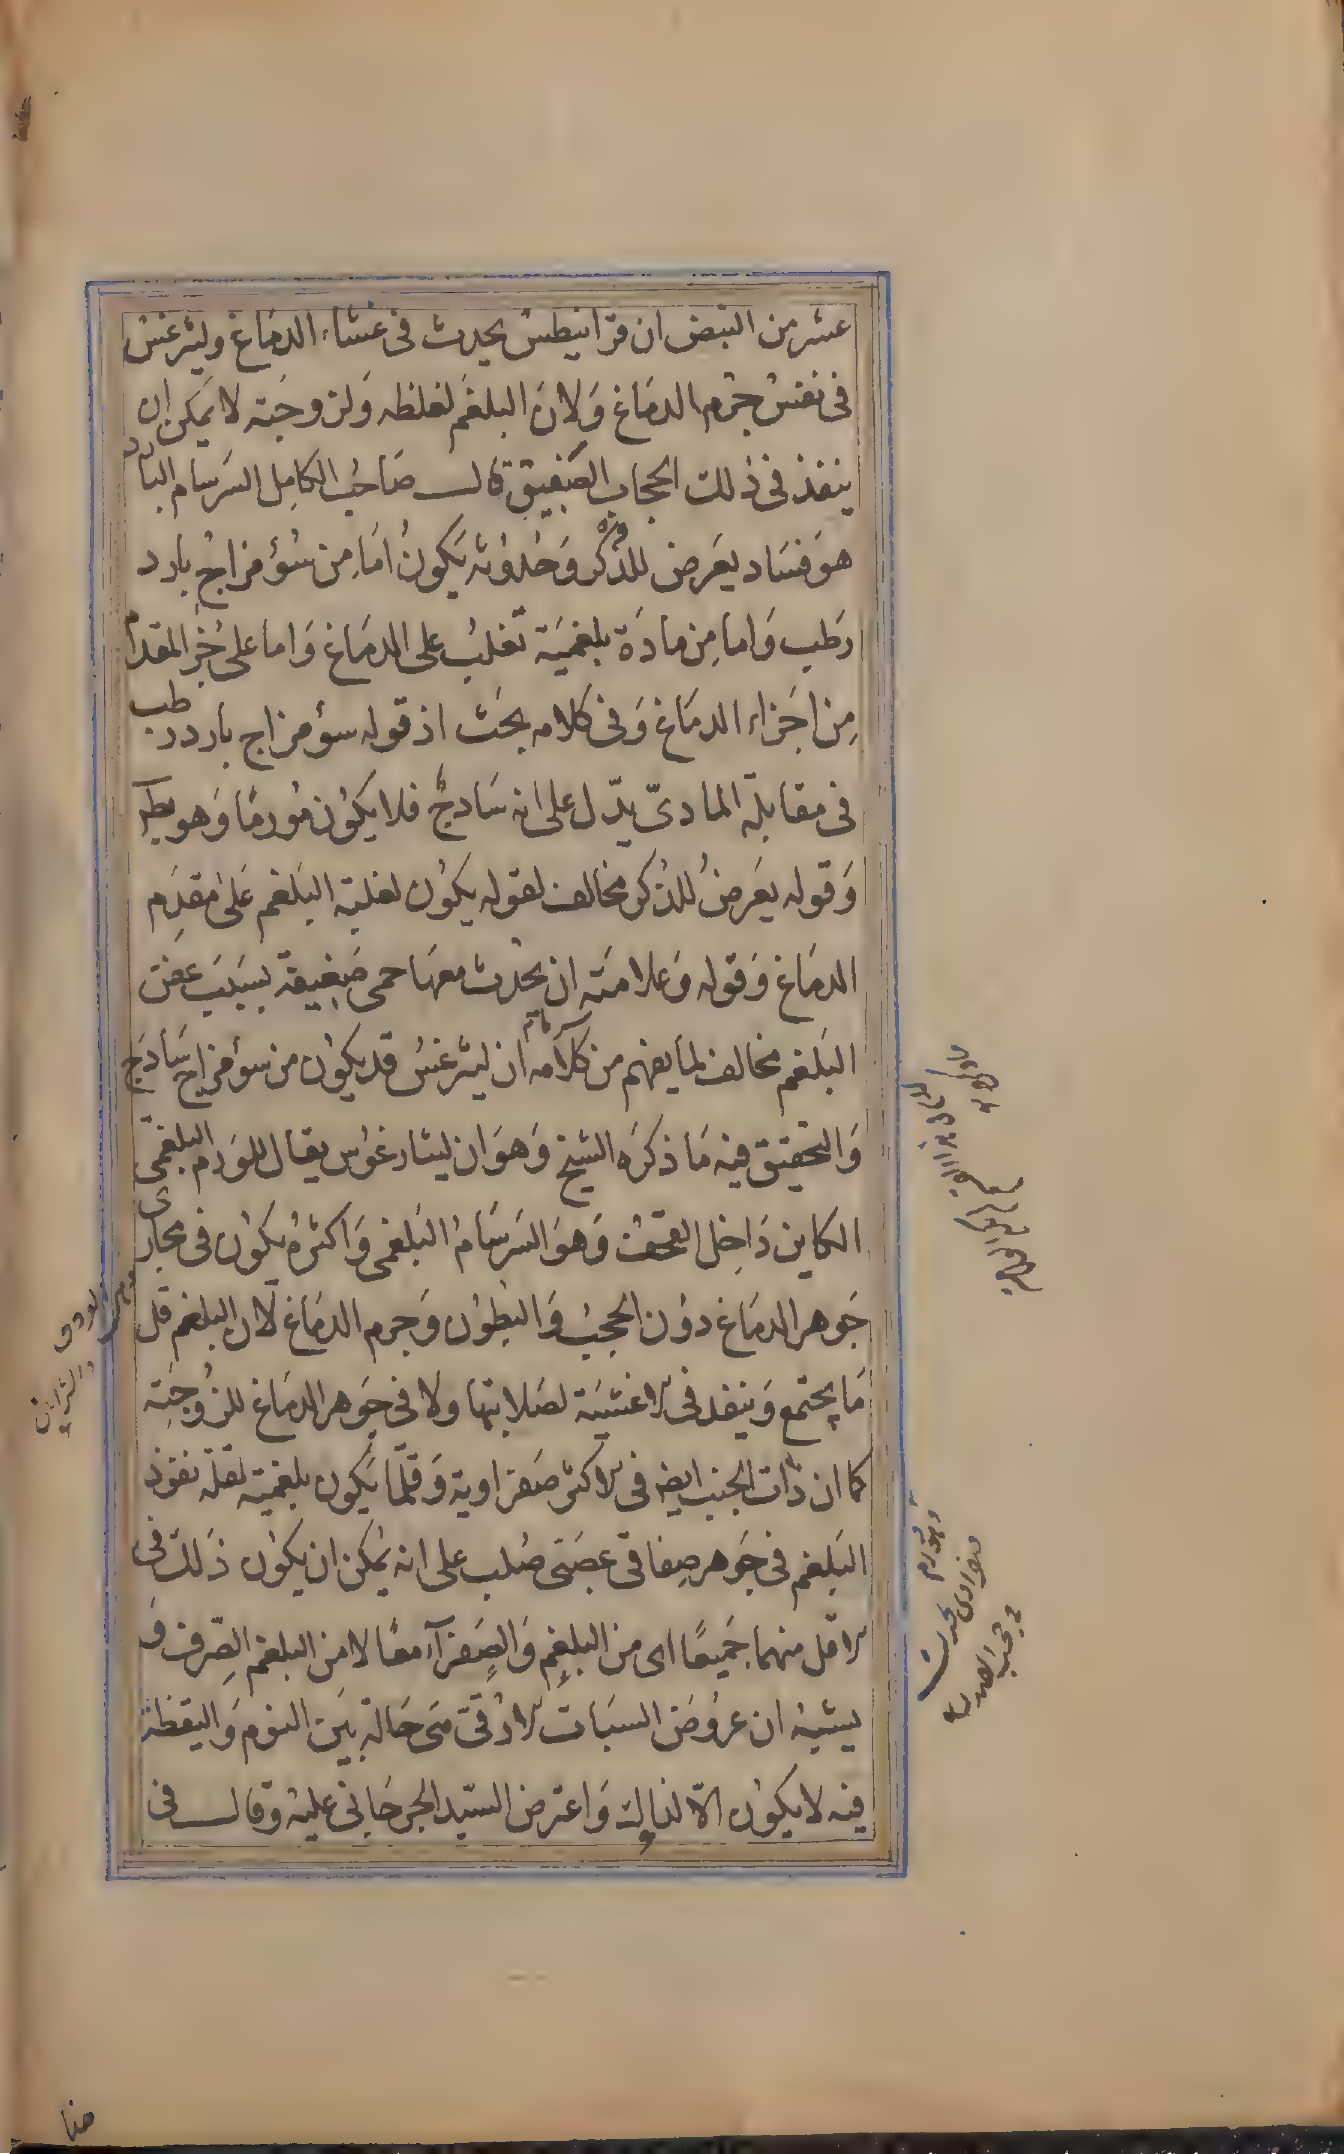 عشر من النبض ان قرانيطس يحدث فى غشاء الدماغ وليثرغس
فى نفس جرم الدماغ وَلان البلغم لغلظه وَلزوجَته لا يمكن ان
ينفذ فى ذلك الحجاب الصَفيق قال صَاحب الكامل السَرسام البارد
هوَ فسَاد يعَرض للذكر وَحُدوثه يَكونُ امَا مِن سُؤ مزاجٍ بارد
رطب وَاما مِن مادَة بلغميَة تغلبُ على الدماغ وَاما على جُزء المقدم
مِن اجَزاء الدمَاغ وَفى كلامه بحَث اذ قوله سؤ مزاج بارد رطب
فى مقابلة المادىّ يدّل على انه سَادجٌ فلا يكوُن مُورمًا وَهو
وَقوله يعَرضُ للذكر مخالف لقوله يكوُن لغلبة البَلغم عَلىٰ مقدَم
الدمَاغ وَقوله وَعلامَته ان يحُدث معهَا حمى ضَعيفة بسَبَب عفَن
البَلغم مخالف لما يفهم من كلامه ان ليثرغسُ قد يكوُن من سؤ مزاج سَادَج
وَالتحقيق فيه مَا ذكرَه الشيخ وَهوَ ان ليثارغوُس يقال للوَرم البلغمىّ
الكاين دَاخِل القحف وَهوَ السَرسَامُ البَلغمى وَاكثرهُ يكوُن فى مجارى
جَوهر الدمَاغ دوُن الحجب وَالبطوُن وَجرم الدمَاغ لاَن البلغم قل
مَا يجتمع وَينفد فى الاغشيَة لصَلابتها ولا فى جَوهر الدمَاغ للزوُجَته
كما ان ذات الجنب ايضه فى الاكثر صَفراوية وَقلّما يَكوُن بلغمية لقلة نفوذ
البَلغم فى جَوهر صِفاقى عصَبى صُلب على انه يُمكن ان يكوُن ذَلك فى
الاقل منهما جَميعًا اى من البلغم وَالصَفرآء معًا لا من البلغم الصِرف وَ
يشبهُ ان عروُضَ السبَات الارُقى مَى حَالة بَين النوم وَاليقظة
فيه لا يكوُن الاّ لذلك وَاعترض السَيّد الجرجَانى عليهُ وقال فى
هنا